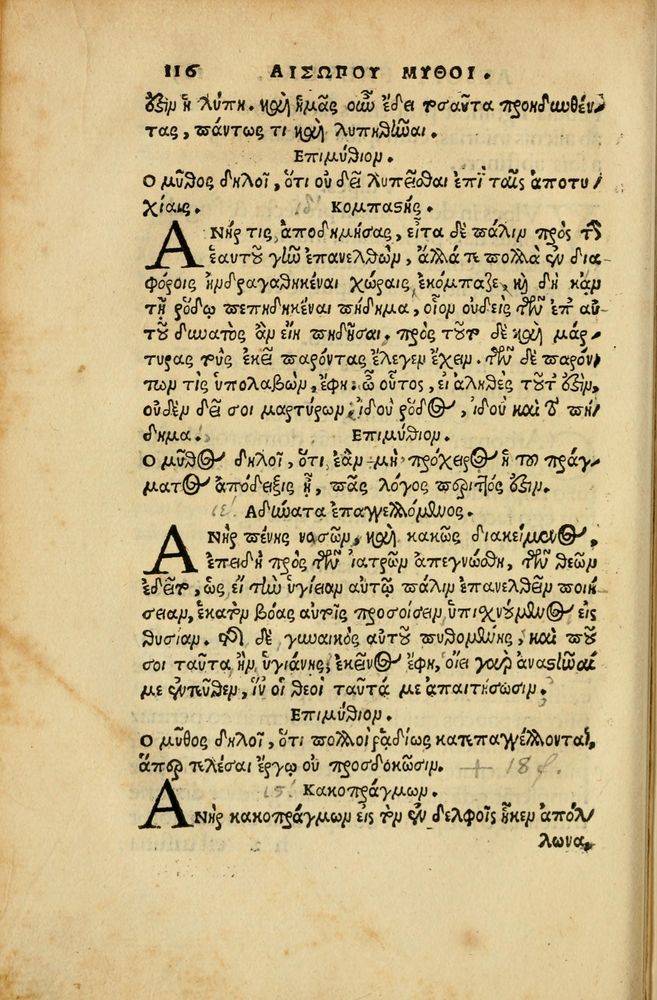 116 ΑΙΣΩΠΟΥ ΜΥΘΟΙ.
ὅξιν ἡ λύπη. καὶ ἡμᾶς οὖν ἔδει τοσαῦτα προηδιωθέν-
τας, πάντως τι καὶ λυπηθῆναι.
Επιμύθιον.
Ο μῦθος δηλοῖ, ὅτι οὐ δεῖ λυπεῖσθαι ἐπὶ ταῖς ἀποτυ/
χίαις. Κομπαστής.
ΑΝήρ τις ἀποδημήσας, εἶτα δὲ πάλιν πρὸς τὴν
ἑαυτοῦ γῆν ἐπανελθὼν, ἄλλά τε πολλὰ ἐν δια-
φόροις ἠνδραγαθηκέναι χώραις ἐκόμπαζε, καὶ δὴ κἀν
τῇ ῥόδῳ πεπηδηκέναι πήδημα, οἷον οὐδεὶς τῶν ἐπ' αὐ-
τοῦ δυνατὸς ἂν εἴη πηδῆσαι. πρὸς τοῦτο δὲ καὶ μάρ-
τυρας τοὺς ἐκεῖ παρόντας ἔλεγεν ἔχειν. τῶν δὲ παρόν/
των τὶς ὑπολαβὼν, ἔφη. ὦ οὗτος, εἰ ἀληθὲς τοῦτ' ἔστιν,
οὐδὲν δεῖ σοι μαρτύρων. ἰδοὺ ῥόδος, ἰδοὺ καὶ τὸ πή/
δημα. Επιμύθιον.
Ο μῦθος δηλοῖ, ὅτι ἐὰν μὴ πρόχειρος ἡ τοῦ πράγ-
ματος ἀπόδειξις ᾖ, πᾶς λόγος περιττός ἐστιν.
Αδύνατα ἐπαγγελλόμενος.
ΑΝὴρ πένης νοσῶν, καὶ κακῶς διακείμενος,
ἐπειδὴ πρὸς τῶν ἰατρῶν ἀπεγνώσθη, τῶν θεῶν
ἐδεῖτο, ὡς εἰ τὴν ὑγίειαν αὐτῷ πάλιν ἐπανελθεῖν ποιή-
σειαν, ἑκατὸν βόας αὐτοῖς προσοίσειν ὑπισχνούμενος εἰς
θυσίαν. τῆς δὲ γυναικὸς αὐτοῦ πυθομένης, καὶ ποῦ
σοι ταῦτα ἢν ὑγιάνῃς, ἐκεῖνος ἔφη, οἴει γὰρ ἀναστῆναί
με ἐντεῦθεν, ἵν' οἱ θεοὶ ταῦτά με ἀπαιτήσωσιν.
Επιμύθιον.
Ο μῦθος δηλοῖ, ὅτι πολλοὶ ῥᾳδίως κατεπαγγέλλονται,
ἅπερ τελέσαι ἔργῳ οὐ προσδοκῶσιν. + 18 f.
Κακοπράγμων.
ΑΝὴρ κακοπράγμων εἰς τὸν ἐν δελφοῖς ἧκεν ἀπόλ/
λωνα,